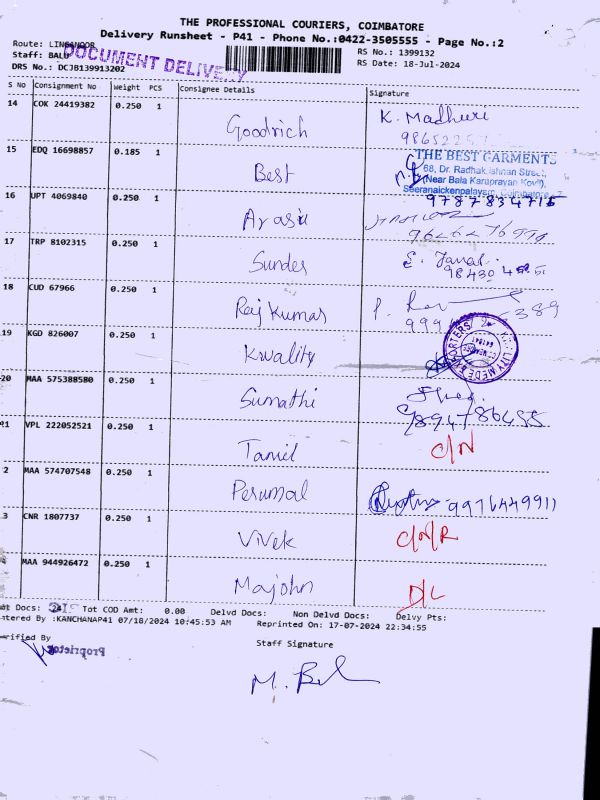 THE PROFESSIONAL COURIERS, COIMBATORE
Delivery Runsheet - P41 - Phone No.:0422-3505555 - Page No.:2
Route: LINGANOOR
Staff: BALU
DOCUMENT DELIVERY
DRS No.: DCJB139913202
RS No.: 1399132
RS Date: 18-Jul-2024
S No Consignment No Weight PCS Consignee Details Signature
14 COK 24419382 0.250 1 Goodrich K. Madhuri
15 EDQ 16698857 0.185 1 Best
THE BEST GARMENTS
68, Dr. Radhakrishnan Street,
(Near Bala Karuprayan Kovil),
Seeranaickenpalayam, Coimbatore - 7
9787834715
16 UPT 4069840 0.250 1 Arasu
17 TRP 8102315 0.250 1 Sundes
18 CUD 67966 0.250 1 Raj Kumas
19 KGD 826007 0.250 1 Kwality
20 MAA 575388580 0.250 1 Sumathi
9894786455
21 VPL 222052521 0.250 1 Tamil C/N
2 MAA 574707548 0.250 1 Perumal 9976449911
3 CNR 1807737 0.250 1 Vivek C/N/R
MAA 944926472 0.250 1 Majohn D/L
Docs: Tot COD Amt: 0.00 Delvd Docs: Non Delvd Docs: Delvy Pts:
ntered By :KANCHANAP41 07/18/2024 10:45:53 AM Reprinted On: 17-07-2024 22:34:55
erified By Staff Signature
Proprietor
M. Bal